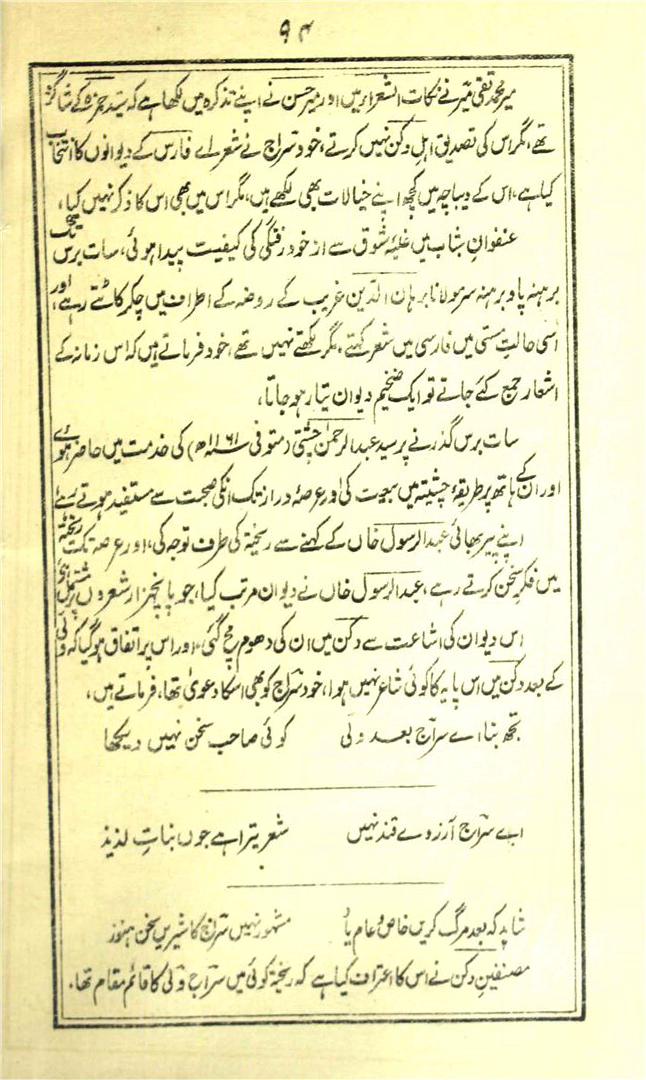 ۹۴
میر محمد تقی میر نے نکات الشعرا میں اور میر حسن نے اپنے تذکرہ میں لکھا ہے کہ سید حمزہ کے شاگرد
تھے، مگر اس کی تصدیق اہل دکن نہیں کرتے، خود سراج نے شعراے فارس کے دیوانوں کا انتخاب
کیا ہے، اس کے دیباچہ میں کچھ اپنے خیالات بھی لکھے ہیں، مگر اس میں بھی اس کا ذکر نہیں کیا،
عنفوانِ شباب میں غلبۂ شوق سے از خود رفتگی کی کیفیت پیدا ہوئی، سات برس تک
برہنہ پا و برہنہ سر مولانا برہان الدین غریب کے روضہ کے اطراف میں چکر کاٹتے رہے، اور
اسی حالتِ مستی میں فارسی میں شعر کہتے، مگر لکھتے نہیں تھے، خود فرماتے ہیں کہ اس زمانہ کے
اشعار جمع کئے جاتے تو ایک ضخیم دیوان تیار ہو جاتا،
سات برس گذرنے پر سید عبد الرحمن چشتی (متوفی ۱۱۶۱ھ) کی خدمت میں حاضر ہوے
اور ان کے ہاتھ پر طریقۂ چشتیہ میں بیعت کی اور عرصۂ دراز تک انکی صحبت سے مستفید ہوتے رہے،
اپنے پیر بھائی عبد الرسول خاں کے کہنے سے ریختہ کی طرف توجہ کی، اور عرصہ تک ریختہ
میں فکرِ سخن کرتے رہے، عبد الرسول خاں نے دیوان مرتب کیا، جو پانچہزار شعروں پر مشتمل
اس دیوان کی اشاعت سے دکن میں ان کی دھوم مچ گئی، اور اس پر اتفاق ہو گیا کہ ولی
کے بعد دکن میں اس پایہ کا کوئی شاعر نہیں ہوا، خود سراج کو بھی اسکا دعویٰ تھا، فرماتے ہیں،
تجھ بنا اے سراج بعد ولی کوئی صاحب سخن نہیں دیکھا
اے سراج آرزوے قند نہیں شعر تیرا ہے جوں نباتِ لذیذ
شاید کہ بعد مرگ کریں خاص و عام یاد مشہور نہیں سراج کا شیریں سخن ہنوز
مصنفینِ دکن نے اس کا اعتراف کیا ہے کہ ریختہ گوئی میں سراج ولی کا قائم مقام تھا۔